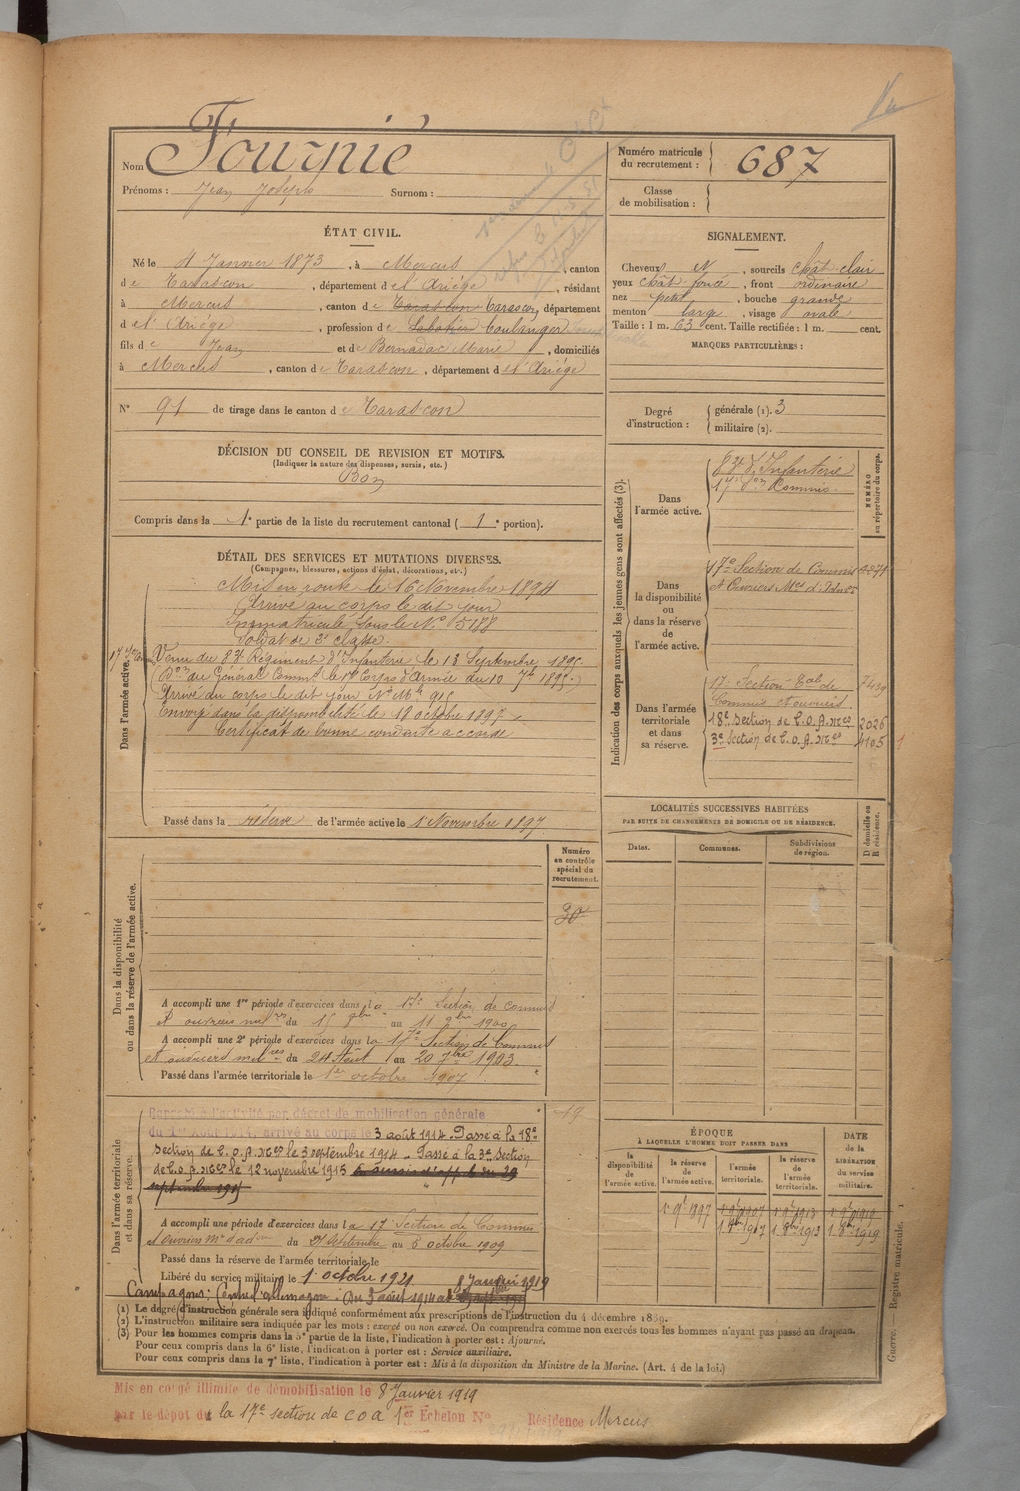 Vu
Nom Fournié
Prénoms : Jean Joseph Surnom :
Numéro matricule du recrutement : 687
Classe de mobilisation :
ÉTAT CIVIL.
Né le 4 Janvier 1873, à Mercus, canton
de Tarascon, département de l'Ariége, résidant
à Mercus, canton de Tarascon Tarascon, département
de l'Ariége, profession de Sabotier boulanger
fils de Jean et de Bernadac Marie, domiciliés
à Mercus, canton de Tarascon, département de l'Ariége
N° 91 de tirage dans le canton de Tarascon
SIGNALEMENT.
Cheveux N, sourcils chât. clair
yeux chât. foncé, front ordinaire
nez petit, bouche grande
menton large, visage ovale
Taille : 1 m. 63 cent. Taille rectifiée : 1 m. cent.
MARQUES PARTICULIÈRES :
Degré d'instruction : générale (1). 3
militaire (2).
DÉCISION DU CONSEIL DE REVISION ET MOTIFS.
(Indiquer la nature des dispenses, sursis, etc.)
Bon
Compris dans la 1e partie de la liste du recrutement cantonal ( 1e portion).
DÉTAIL DES SERVICES ET MUTATIONS DIVERSES.
(Campagnes, blessures, actions d'éclat, décorations, etc.)
Dans l'armée active.
Mis en route le 16 Novembre 1894
Arrivé au corps le dit jour
Immatriculé sous le N° 5188
Soldat de 2e classe.
Venu du 83e Régiment d'Infanterie le 13 Septembre 1895.
(Don du Général Commt le 17e Corps d'Armée du 10 7bre 1895.)
Arrivé au corps le dit jour N° Mle 915
Envoyé dans la disponibilité le 18 octobre 1897
Certificat de bonne conduite accordé
Passé dans la réserve de l'armée active le 1 Novembre 1897
Indication des corps auxquels les jeunes gens sont affectés (3).
NUMÉRO au répertoire du corps.
Dans l'armée active.
83e d'Infanterie
17e Son Commis
Dans la disponibilité ou dans la réserve de l'armée active.
17e Section de Commis
et Ouvriers Mres d'Admon
Dans l'armée territoriale et dans sa réserve.
17e Section Eale de 7439
Commis et ouvriers.
18e Section de C.O.A. Mres 2026
3e Section de C.O.A. Mres 4105
LOCALITÉS SUCCESSIVES HABITÉES
PAR SUITE DE CHANGEMENTS DE DOMICILE OU DE RÉSIDENCE.
Dates. Communes. Subdivisions de région. D domicile ou R résidence.
Numéro au contrôle spécial du recrutement.
30
Dans la disponibilité ou dans la réserve de l'armée active.
A accompli une 1re période d'exercices dans la 17e Section de commis
et ouvriers mres du 15 8bre au 11 9bre 1900
A accompli une 2e période d'exercices dans la 17e Section de Commis
et ouvriers milres du 24 Août au 20 7bre 1903.
Passé dans l'armée territoriale le 1er octobre 1907
Dans l'armée territoriale et dans sa réserve.
19
Rappelé à l'activité par décret de mobilisation générale
du 1er Août 1914, arrivé au corps le 3 août 1914. Passé à la 18e
Section de C.O.A. Mres le 3 septembre 1914. Passé à la 3e Section
de C.O.A. Mres le 12 novembre 1915
A accompli une période d'exercices dans la 17e Section de Commis
et Ouvriers Mres d'adon du 27 Septembre au 5 octobre 1909
Passé dans la réserve de l'armée territoriale le
Libéré du service militaire le 1er octobre 1921
Campagnes : Contre l'Allemagne : du 3 août 1914 au 8 Janvier 1919
ÉPOQUE
À LAQUELLE L'HOMME DOIT PASSER DANS
DATE DE LA LIBÉRATION du service militaire.
la disponibilité de l'armée active. la réserve de l'armée active. l'armée territoriale. la réserve de l'armée territoriale.
1er 9bre 1897 1er 9bre 1907 1er 9bre 1913 1er 9bre 1919
1. 8bre 1907 1. 8bre 1913 1. 8bre 1919
(1) Le degré d'instruction générale sera indiqué conformément aux prescriptions de l'instruction du 4 décembre 1889.
(2) L'instruction militaire sera indiquée par les mots : exercé ou non exercé. On comprendra comme non exercés tous les hommes n'ayant pas passé au drapeau.
(3) Pour les hommes compris dans la 5e partie de la liste, l'indication à porter est : Ajourné.
Pour ceux compris dans la 6e liste, l'indication à porter est : Service auxiliaire.
Pour ceux compris dans la 7e liste, l'indication à porter est : Mis à la disposition du Ministre de la Marine. (Art. 4 de la loi.)
Guerre. — Registre matricule. 1
Mis en congé illimité de démobilisation le 8 Janvier 1919
par le dépôt de la 17e section de COA 1er Echelon N° Résidence Mercus